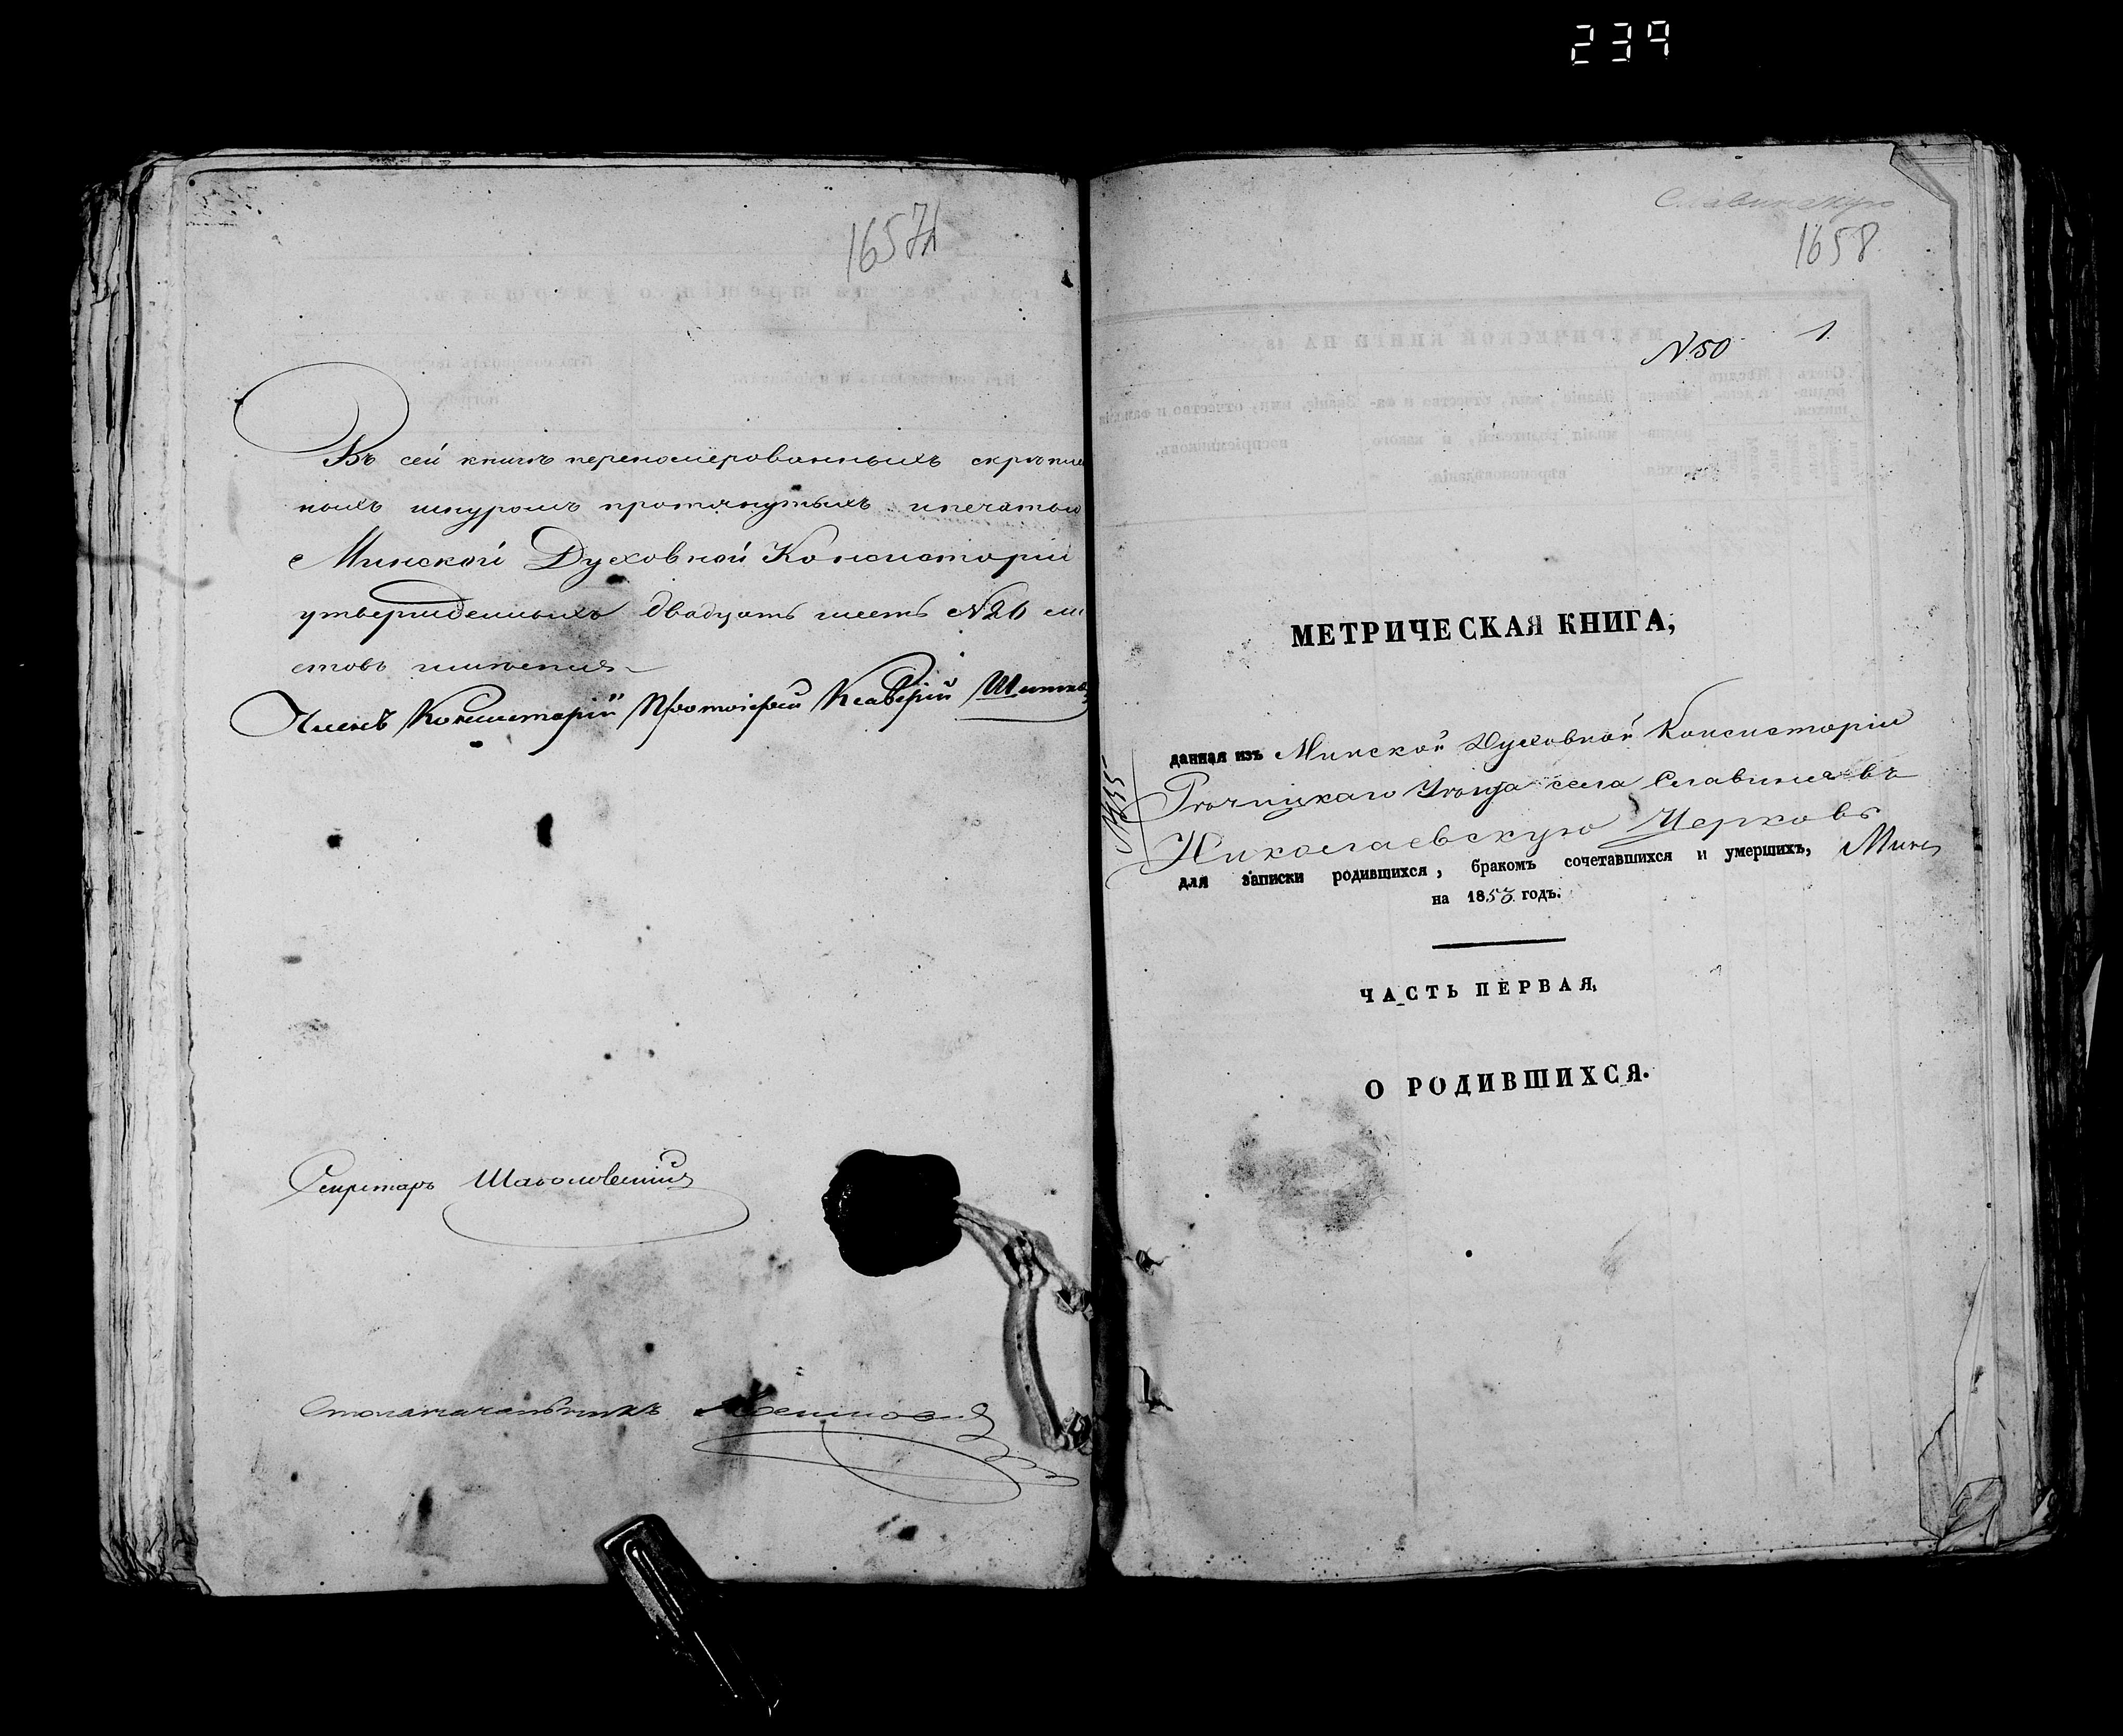 239
1657
Въ сей книгѣ перенумерованныхъ скрѣплен
ныхъ шнуромъ протянутыхъ и печатью
Минской Духовной Консисторіи
утвержденныхъ двадцать шесть №26 ли
стовъ
Членъ Консисторіи Протоіерей Ксаверій
Секретарь
Столоначальникъ
Славинскую
1658
№50 1.
МЕТРИЧЕСКАЯ КНИГА,
данная изъ Минской Духовной Консисторіи
Рѣчицкаго Уѣзда села Славинска въ
Николаевскую Церковь
для записки родившихся, бракомъ сочетавшихся и умершихъ,
на 1853 годъ.
ЧАСТЬ ПЕРВАЯ,
О РОДИВШИХСЯ.